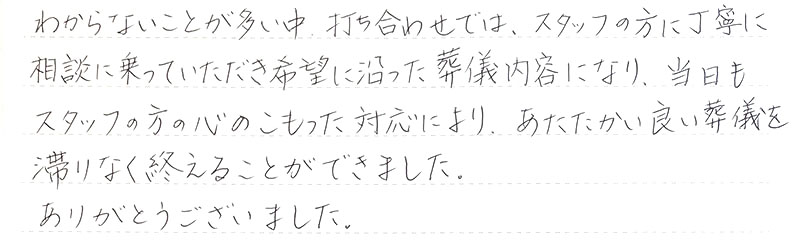 わからないことが多い中、打ち合わせでは、スタッフの方に丁寧に
相談に乗っていただき希望に沿った葬儀内容になり、当日も
スタッフの方の心のこもった対応により、あたたかい良い葬儀を
滞りなく終えることができました。
ありがとうございました。